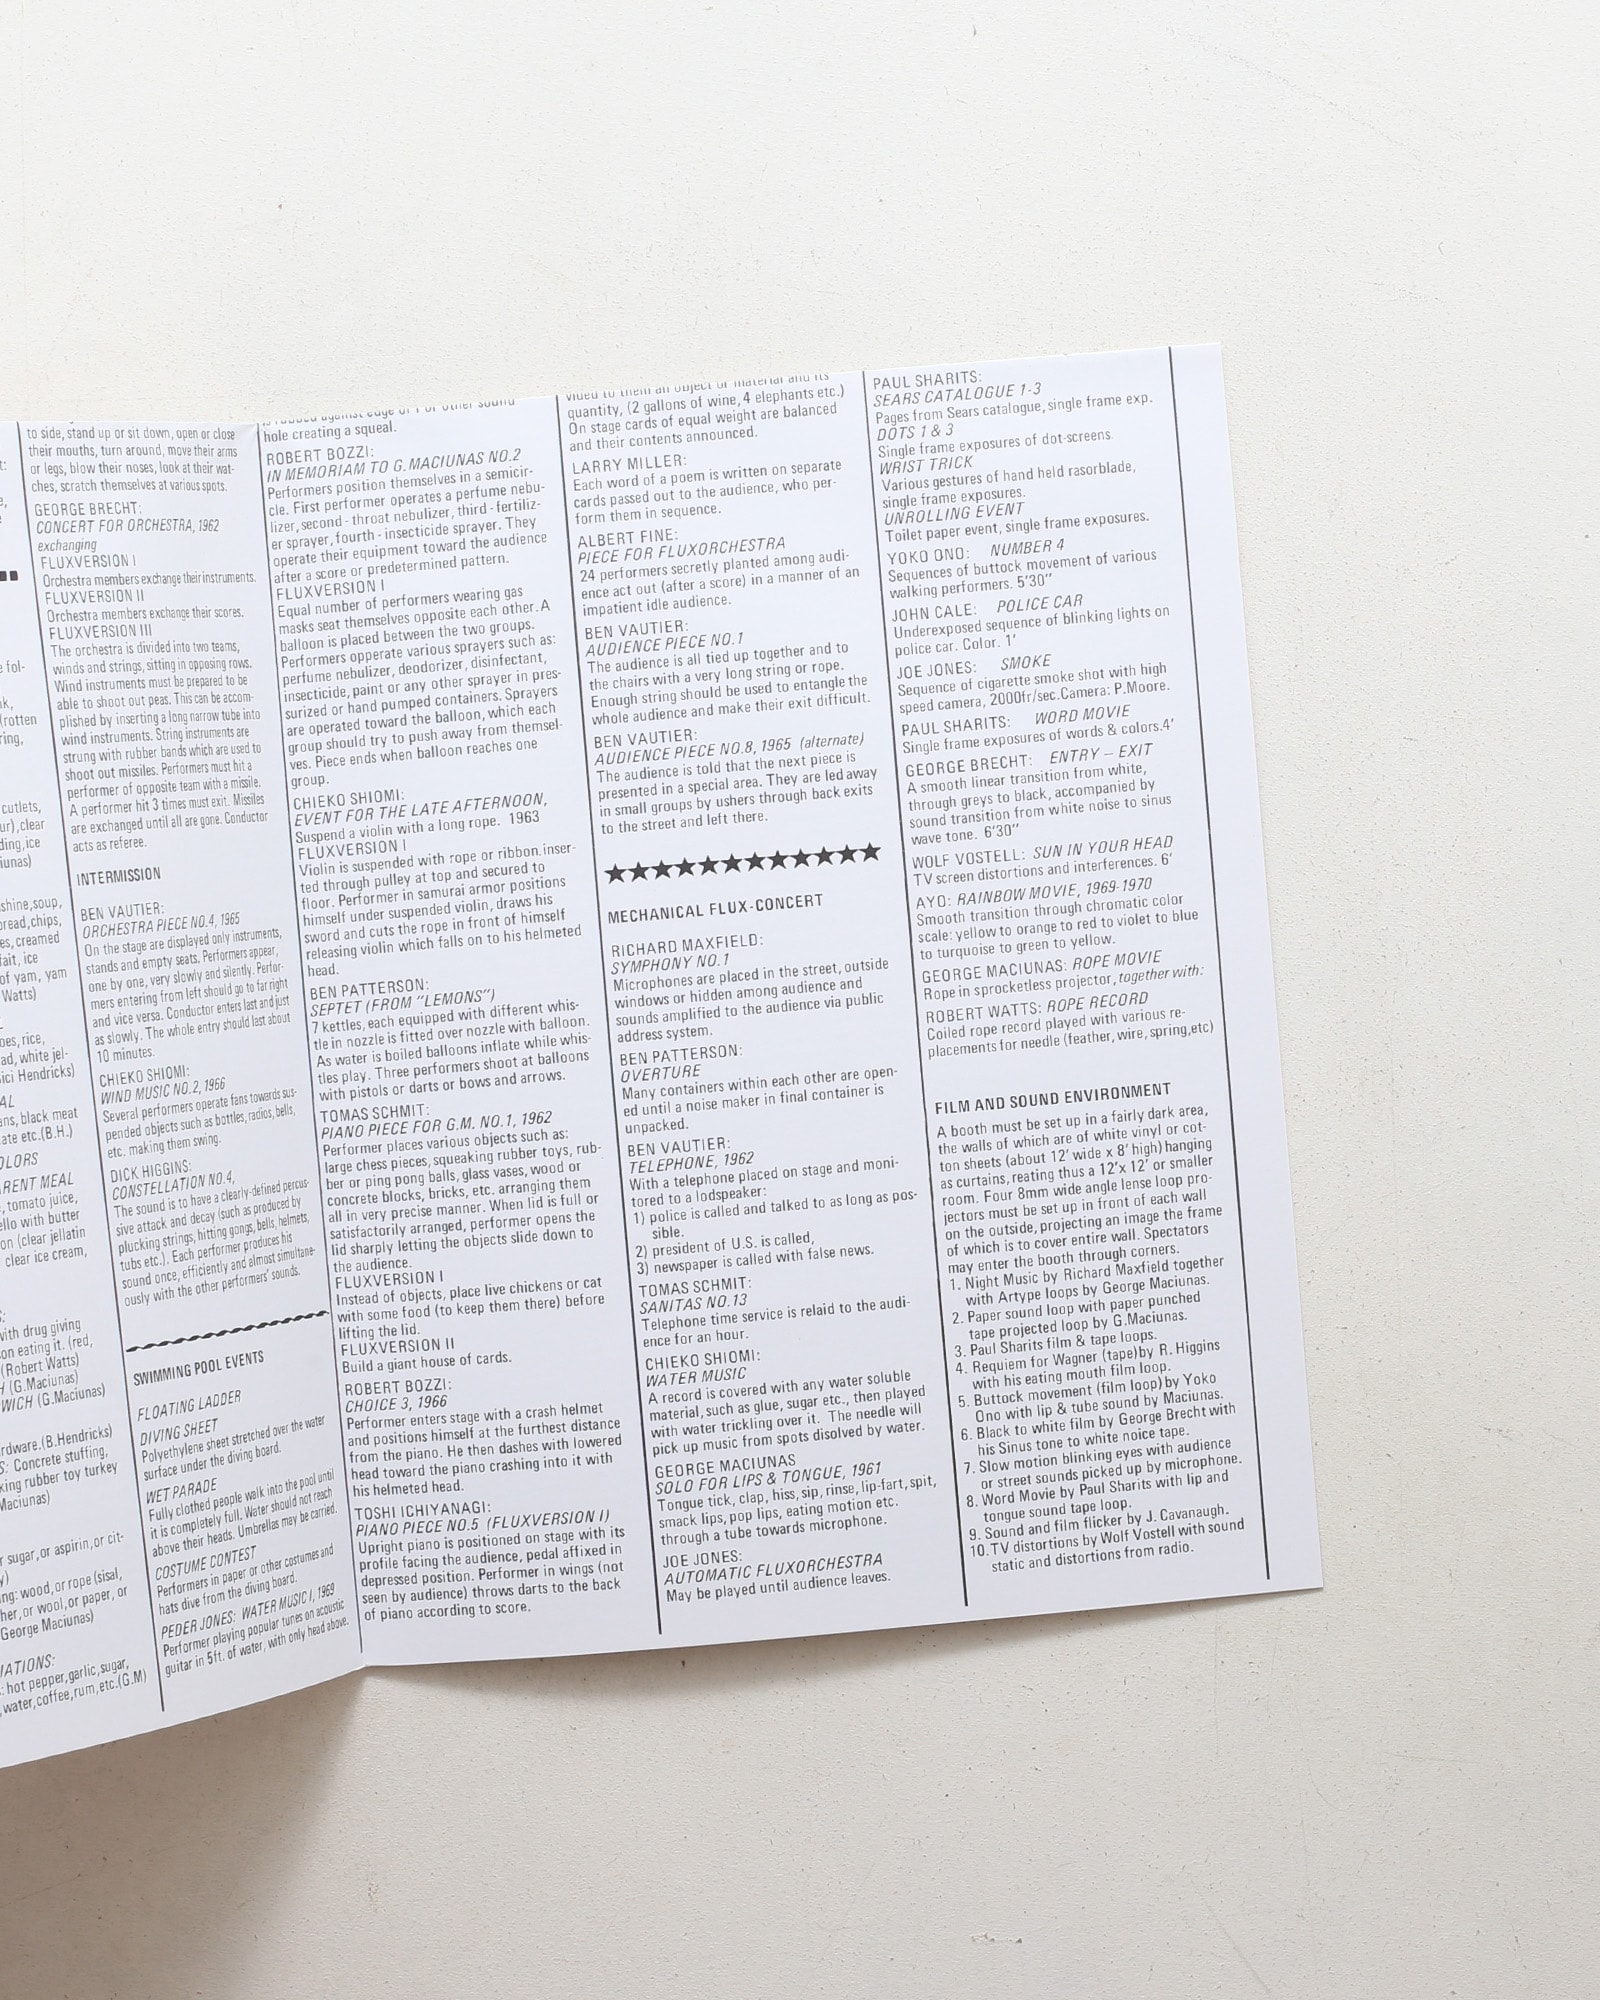 t:
e,
e fol-
nk,
(rotten
ring,
cutlets,
ur),clear
ding,ice
iunas)
shine,soup,
read,chips,
es,creamed
fait, ice
of yam, yam
Watts)
oes,rice,
ad, white jel-
ici Hendricks)
AL
ans, black meat
ate etc.(B.H.)
OLORS
RENT MEAL
, tomato juice,
ello with butter
on (clear jellatin
clear ice cream,
s:
with drug giving
on eating it. (red,
(Robert Watts)
H (G.Maciunas)
WICH (G.Maciunas)
rdware.(B.Hendricks)
S: Concrete stuffing,
king rubber toy turkey
Maciunas)
r sugar,or aspirin,or cit-
y)
ing: wood,or rope (sisal,
her,or wool,or paper, or
George Maciunas)
IATIONS:
: hot pepper,garlic,sugar,
,water,coffee,rum,etc.(G.M)
to side, stand up or sit down, open or close
their mouths, turn around, move their arms
or legs, blow their noses, look at their wat-
ches, scratch themselves at various spots.
GEORGE BRECHT:
CONCERT FOR ORCHESTRA, 1962
exchanging
FLUXVERSION I
Orchestra members exchange their instruments.
FLUXVERSION II
Orchestra members exchange their scores.
FLUXVERSION III
The orchestra is divided into two teams,
winds and strings, sitting in opposing rows.
Wind instruments must be prepared to be
able to shoot out peas. This can be accom-
plished by inserting a long narrow tube into
wind instruments. String instruments are
strung with rubber bands which are used to
shoot out missiles. Performers must hit a
performer of opposite team with a missile.
A performer hit 3 times must exit. Missiles
are exchanged until all are gone. Conductor
acts as referee.
INTERMISSION
BEN VAUTIER:
ORCHESTRA PIECE NO.4, 1965
On the stage are displayed only instruments,
stands and empty seats. Performers appear,
one by one, very slowly and silently. Perfor-
mers entering from left should go to far right
and vice versa. Conductor enters last and just
as slowly. The whole entry should last about
10 minutes.
CHIEKO SHIOMI:
WIND MUSIC NO.2, 1966
Several performers operate fans towards sus-
pended objects such as bottles, radios, bells,
etc. making them swing.
DICK HIGGINS:
CONSTELLATION NO.4,
The sound is to have a clearly-defined percus-
sive attack and decay (such as produced by
plucking strings, hitting gongs, bells, helmets,
tubs etc.). Each performer produces his
sound once, efficiently and almost simultane-
ously with the other performers' sounds.
SWIMMING POOL EVENTS
FLOATING LADDER
DIVING SHEET
Polyethylene sheet stretched over the water
surface under the diving board.
WET PARADE
Fully clothed people walk into the pool until
it is completely full. Water should not reach
above their heads. Umbrellas may be carried.
COSTUME CONTEST
Performers in paper or other costumes and
hats dive from the diving board.
PEDER JONES: WATER MUSIC I, 1969
Performer playing popular tunes on acoustic
guitar in 5ft. of water, with only head above.
is rubbed against edge of f or other sound
hole creating a squeal.
ROBERT BOZZI:
IN MEMORIAM TO G.MACIUNAS NO.2
Performers position themselves in a semicir-
cle. First performer operates a perfume nebu-
lizer, second - throat nebulizer, third - fertiliz-
er sprayer, fourth - insecticide sprayer. They
operate their equipment toward the audience
after a score or predetermined pattern.
FLUXVERSION I
Equal number of performers wearing gas
masks seat themselves opposite each other. A
balloon is placed between the two groups.
Performers opperate various sprayers such as:
perfume nebulizer, deodorizer, disinfectant,
insecticide, paint or any other sprayer in pres-
surized or hand pumped containers. Sprayers
are operated toward the balloon, which each
group should try to push away from themsel-
ves. Piece ends when balloon reaches one
group.
CHIEKO SHIOMI:
EVENT FOR THE LATE AFTERNOON,
Suspend a violin with a long rope. 1963
FLUXVERSION I
Violin is suspended with rope or ribbon.inser-
ted through pulley at top and secured to
floor. Performer in samurai armor positions
himself under suspended violin, draws his
sword and cuts the rope in front of himself
releasing violin which falls on to his helmeted
head.
BEN PATTERSON:
SEPTET (FROM "LEMONS")
7 kettles, each equipped with different whis-
tle in nozzle is fitted over nozzle with balloon.
As water is boiled balloons inflate while whis-
tles play. Three performers shoot at balloons
with pistols or darts or bows and arrows.
TOMAS SCHMIT:
PIANO PIECE FOR G.M. NO.1, 1962
Performer places various objects such as:
large chess pieces, squeaking rubber toys, rub-
ber or ping pong balls, glass vases, wood or
concrete blocks, bricks, etc. arranging them
all in very precise manner. When lid is full or
satisfactorily arranged, performer opens the
lid sharply letting the objects slide down to
the audience.
FLUXVERSION I
Instead of objects, place live chickens or cat
with some food (to keep them there) before
lifting the lid.
FLUXVERSION II
Build a giant house of cards.
ROBERT BOZZI:
CHOICE 3, 1966
Performer enters stage with a crash helmet
and positions himself at the furthest distance
from the piano. He then dashes with lowered
head toward the piano crashing into it with
his helmeted head.
TOSHI ICHIYANAGI:
PIANO PIECE NO.5 (FLUXVERSION I)
Upright piano is positioned on stage with its
profile facing the audience, pedal affixed in
depressed position. Performer in wings (not
seen by audience) throws darts to the back
of piano according to score.
vided to them an object or material and its
quantity, (2 gallons of wine, 4 elephants etc.)
On stage cards of equal weight are balanced
and their contents announced.
LARRY MILLER:
Each word of a poem is written on separate
cards passed out to the audience, who per-
form them in sequence.
ALBERT FINE:
PIECE FOR FLUXORCHESTRA
24 performers secretly planted among audi-
ence act out (after a score) in a manner of an
impatient idle audience.
BEN VAUTIER:
AUDIENCE PIECE NO.1
The audience is all tied up together and to
the chairs with a very long string or rope.
Enough string should be used to entangle the
whole audience and make their exit difficult.
BEN VAUTIER:
AUDIENCE PIECE NO.8, 1965 (alternate)
The audience is told that the next piece is
presented in a special area. They are led away
in small groups by ushers through back exits
to the street and left there.
★★★★★★★★★★★★
MECHANICAL FLUX-CONCERT
RICHARD MAXFIELD:
SYMPHONY NO.1
Microphones are placed in the street, outside
windows or hidden among audience and
sounds amplified to the audience via public
address system.
BEN PATTERSON:
OVERTURE
Many containers within each other are open-
ed until a noise maker in final container is
unpacked.
BEN VAUTIER:
TELEPHONE, 1962
With a telephone placed on stage and moni-
tored to a lodspeaker:
1) police is called and talked to as long as pos-
sible.
2) president of U.S. is called,
3) newspaper is called with false news.
TOMAS SCHMIT:
SANITAS NO.13
Telephone time service is relaid to the audi-
ence for an hour.
CHIEKO SHIOMI:
WATER MUSIC
A record is covered with any water soluble
material, such as glue, sugar etc., then played
with water trickling over it. The needle will
pick up music from spots disolved by water.
GEORGE MACIUNAS
SOLO FOR LIPS & TONGUE, 1961
Tongue tick, clap, hiss, sip, rinse, lip-fart, spit,
smack lips, pop lips, eating motion etc.
through a tube towards microphone.
JOE JONES:
AUTOMATIC FLUXORCHESTRA
May be played until audience leaves.
PAUL SHARITS:
SEARS CATALOGUE 1-3
Pages from Sears catalogue, single frame exp.
DOTS 1 & 3
Single frame exposures of dot-screens.
WRIST TRICK
Various gestures of hand held rasorblade,
single frame exposures.
UNROLLING EVENT
Toilet paper event, single frame exposures.
YOKO ONO: NUMBER 4
Sequences of buttock movement of various
walking performers. 5'30"
JOHN CALE: POLICE CAR
Underexposed sequence of blinking lights on
police car. Color. 1'
JOE JONES: SMOKE
Sequence of cigarette smoke shot with high
speed camera, 2000fr/sec.Camera: P.Moore.
PAUL SHARITS: WORD MOVIE
Single frame exposures of words & colors.4'
GEORGE BRECHT: ENTRY – EXIT
A smooth linear transition from white,
through greys to black, accompanied by
sound transition from white noise to sinus
wave tone. 6'30"
WOLF VOSTELL: SUN IN YOUR HEAD
TV screen distortions and interferences. 6'
AYO: RAINBOW MOVIE, 1969-1970
Smooth transition through chromatic color
scale: yellow to orange to red to violet to blue
to turquoise to green to yellow.
GEORGE MACIUNAS: ROPE MOVIE
Rope in sprocketless projector, together with:
ROBERT WATTS: ROPE RECORD
Coiled rope record played with various re-
placements for needle (feather, wire, spring,etc)
FILM AND SOUND ENVIRONMENT
A booth must be set up in a fairly dark area,
the walls of which are of white vinyl or cot-
ton sheets (about 12' wide x 8' high) hanging
as curtains, reating thus a 12'x 12' or smaller
room. Four 8mm wide angle lense loop pro-
jectors must be set up in front of each wall
on the outside, projecting an image the frame
of which is to cover entire wall. Spectators
may enter the booth through corners.
1. Night Music by Richard Maxfield together
with Artype loops by George Maciunas.
2. Paper sound loop with paper punched
tape projected loop by G.Maciunas.
3. Paul Sharits film & tape loops.
4. Requiem for Wagner (tape)by R. Higgins
with his eating mouth film loop.
5. Buttock movement (film loop) by Yoko
Ono with lip & tube sound by Maciunas.
6. Black to white film by George Brecht with
his Sinus tone to white noice tape.
7. Slow motion blinking eyes with audience
or street sounds picked up by microphone.
8. Word Movie by Paul Sharits with lip and
tongue sound tape loop.
9. Sound and film flicker by J. Cavanaugh.
10.TV distortions by Wolf Vostell with sound
static and distortions from radio.